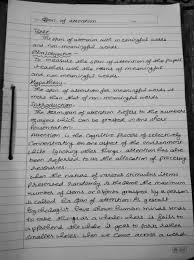 Span of attention
Test:
The span of attention with meaningful words
and non-meaningful words.
Introduction:
To measure the span of attention of the subject
of meaningful
and non meaningful words.
Hypothesis:
The span of attention for meaningful words is
more than that of non-meaningful words.
Introduction:
The term span of attention refers to the number
of objects which can be grasped in one short
presentation.
Attention is the cognitive process of selectively
concentrating on one aspect of the environment
while ignoring other things. Attention has also
been referred to as the allocation of processing
resources.
When the nature of various stimulus items
presented randomly is the maximum
number of items or objects grasped by a person
is called his span of attention. As
Psychologist have shown human minds tends
to take the as a whole when it fails to
apprehend the whole it goes to parts rather
smaller wholes when we come across a word